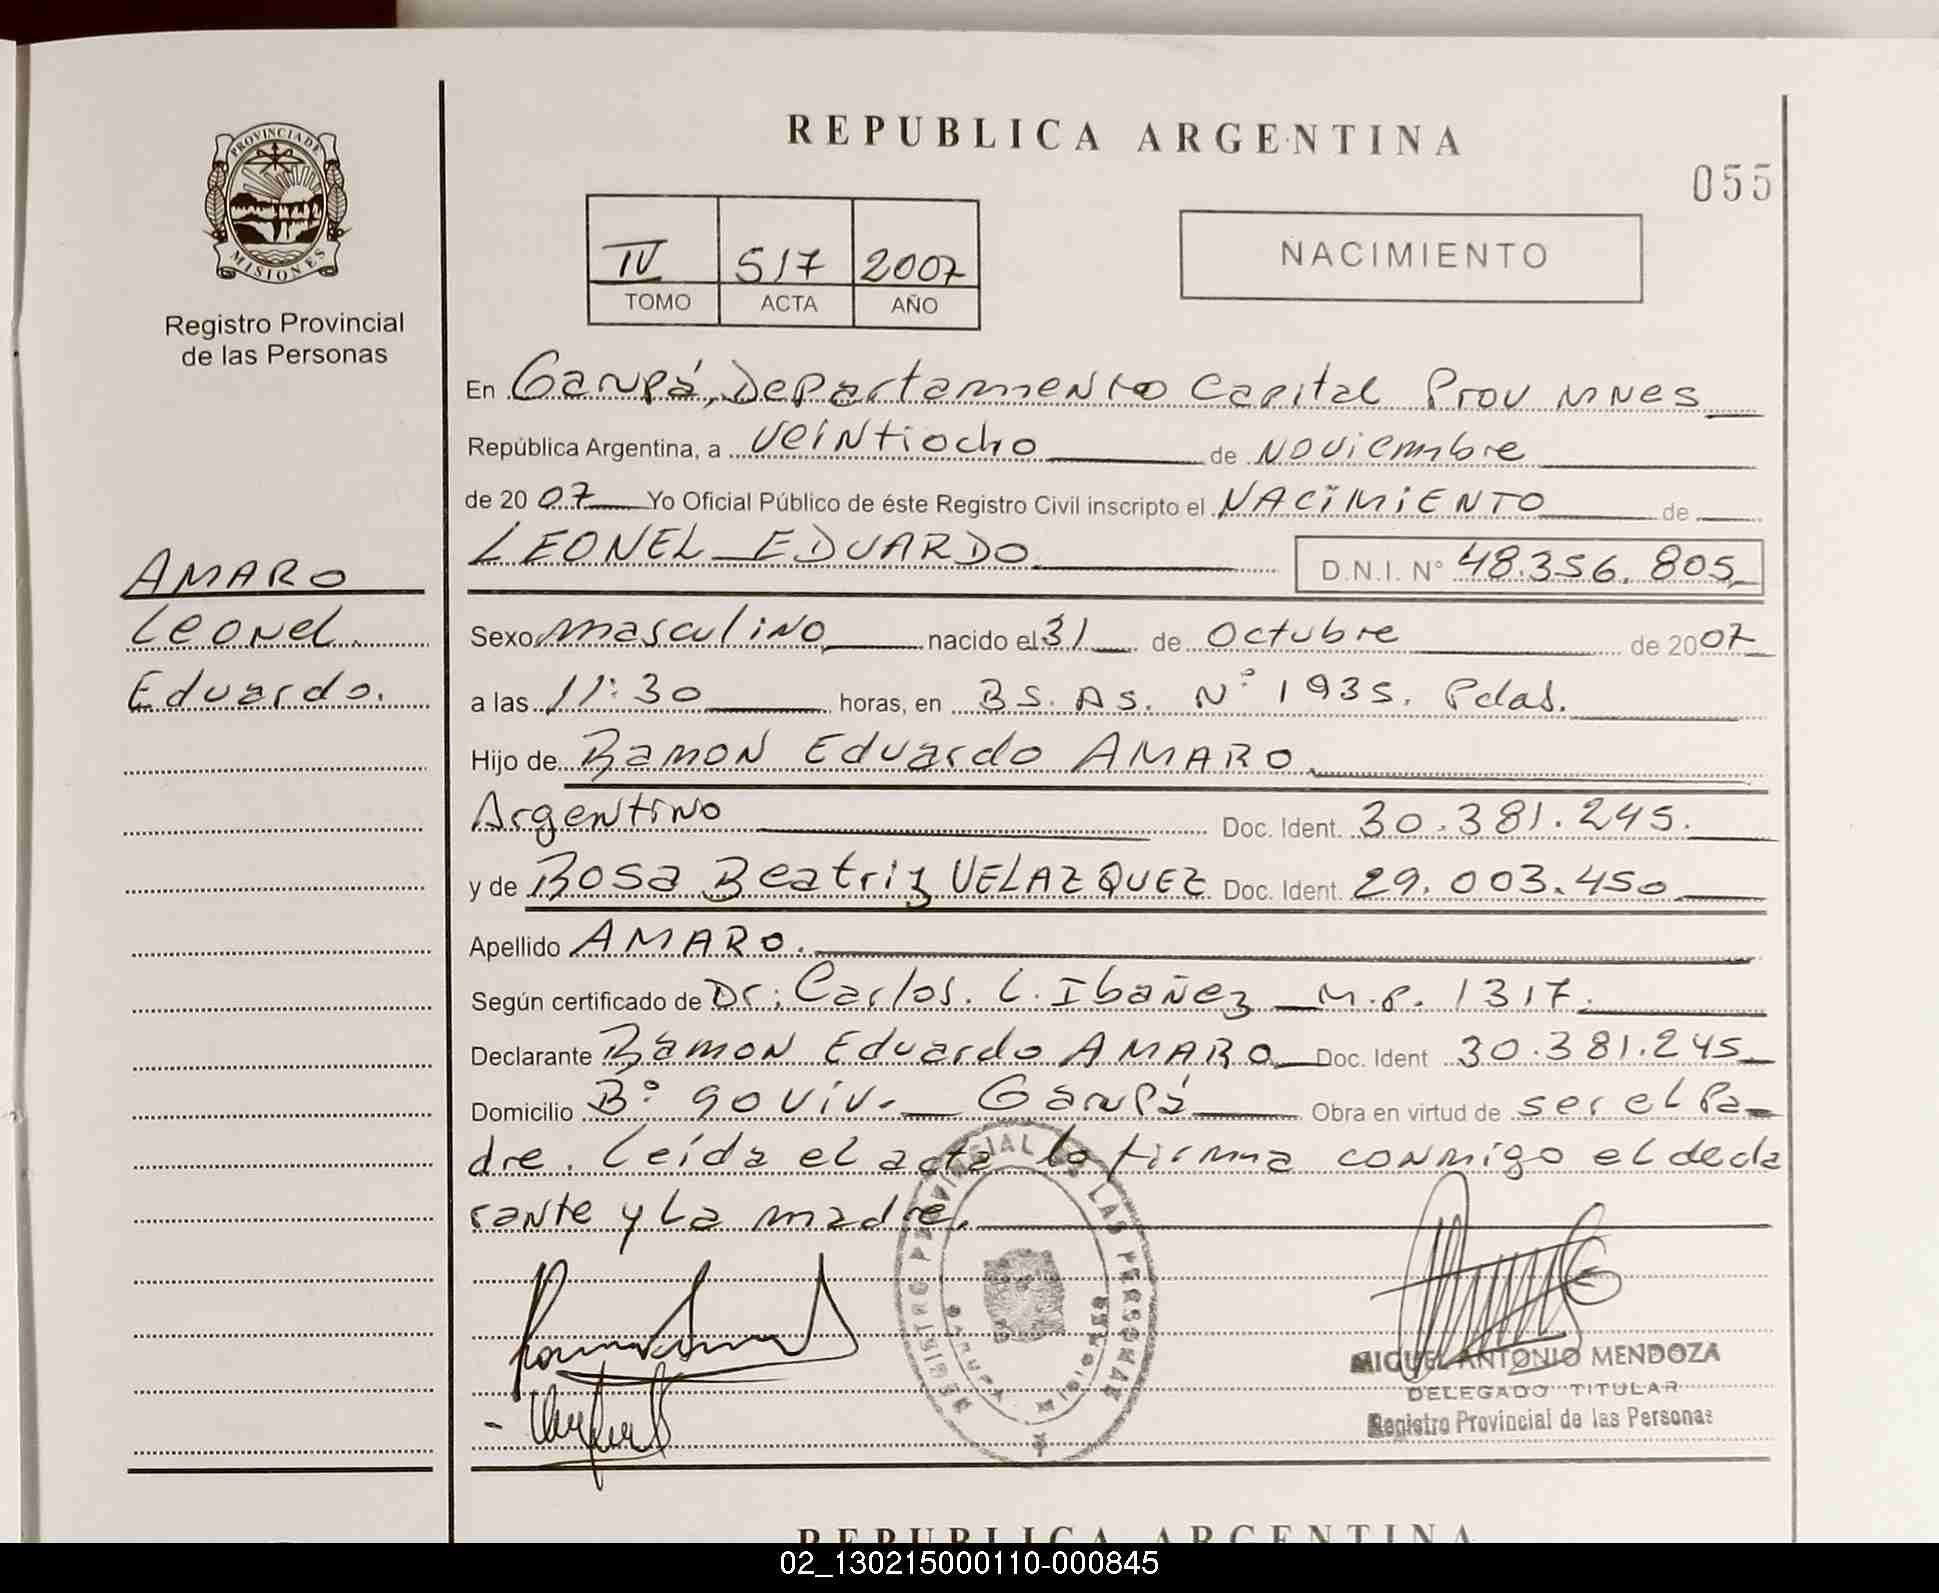 REPUBLICA ARGENTINA
055
PROVINCIA DE
MISIONES
Registro Provincial
de las Personas
IV 517 2007
TOMO ACTA AÑO
NACIMIENTO
En Garupá, Departamento Capital Prov Mnes
República Argentina, a veintiocho de noviembre
de 2007 Yo Oficial Público de éste Registro Civil inscripto el NACIMIENTO de
LEONEL EDUARDO D.N.I. N° 48.356.805
AMARO
Leonel
Eduardo.
Sexo masculino nacido el 31 de Octubre de 2007
a las 11:30 horas, en BS. AS. N° 1935. Pdas.
Hijo de Ramon Eduardo AMARO
Argentino Doc. Ident. 30.381.245.
y de Rosa Beatriz VELAZQUEZ Doc. Ident. 29.003.450
Apellido AMARO.
Según certificado de Dr: Carlos. L. Ibañez M.P. 1317.
Declarante Ramon Eduardo AMARO Doc. Ident 30.381.245
Domicilio B° 90 viv. Garupá Obra en virtud de ser el Pa
dre. Leída el acta la firma conmigo el decla
rante y La madre.
REGISTRO PROVINCIAL DE LAS PERSONAS
GARUPA MISIONES
MIGUEL ANTONIO MENDOZA
DELEGADO TITULAR
Registro Provincial de las Personas
REPUBLICA ARGENTINA
02_130215000110-000845